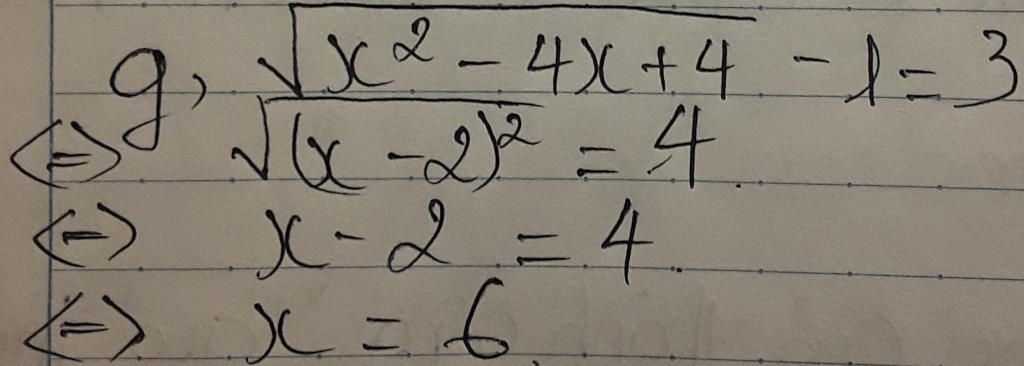 g, √(x² - 4x + 4) - 1 = 3
<=> √(x - 2)² = 4.
<=> x - 2 = 4.
<=> x = 6.